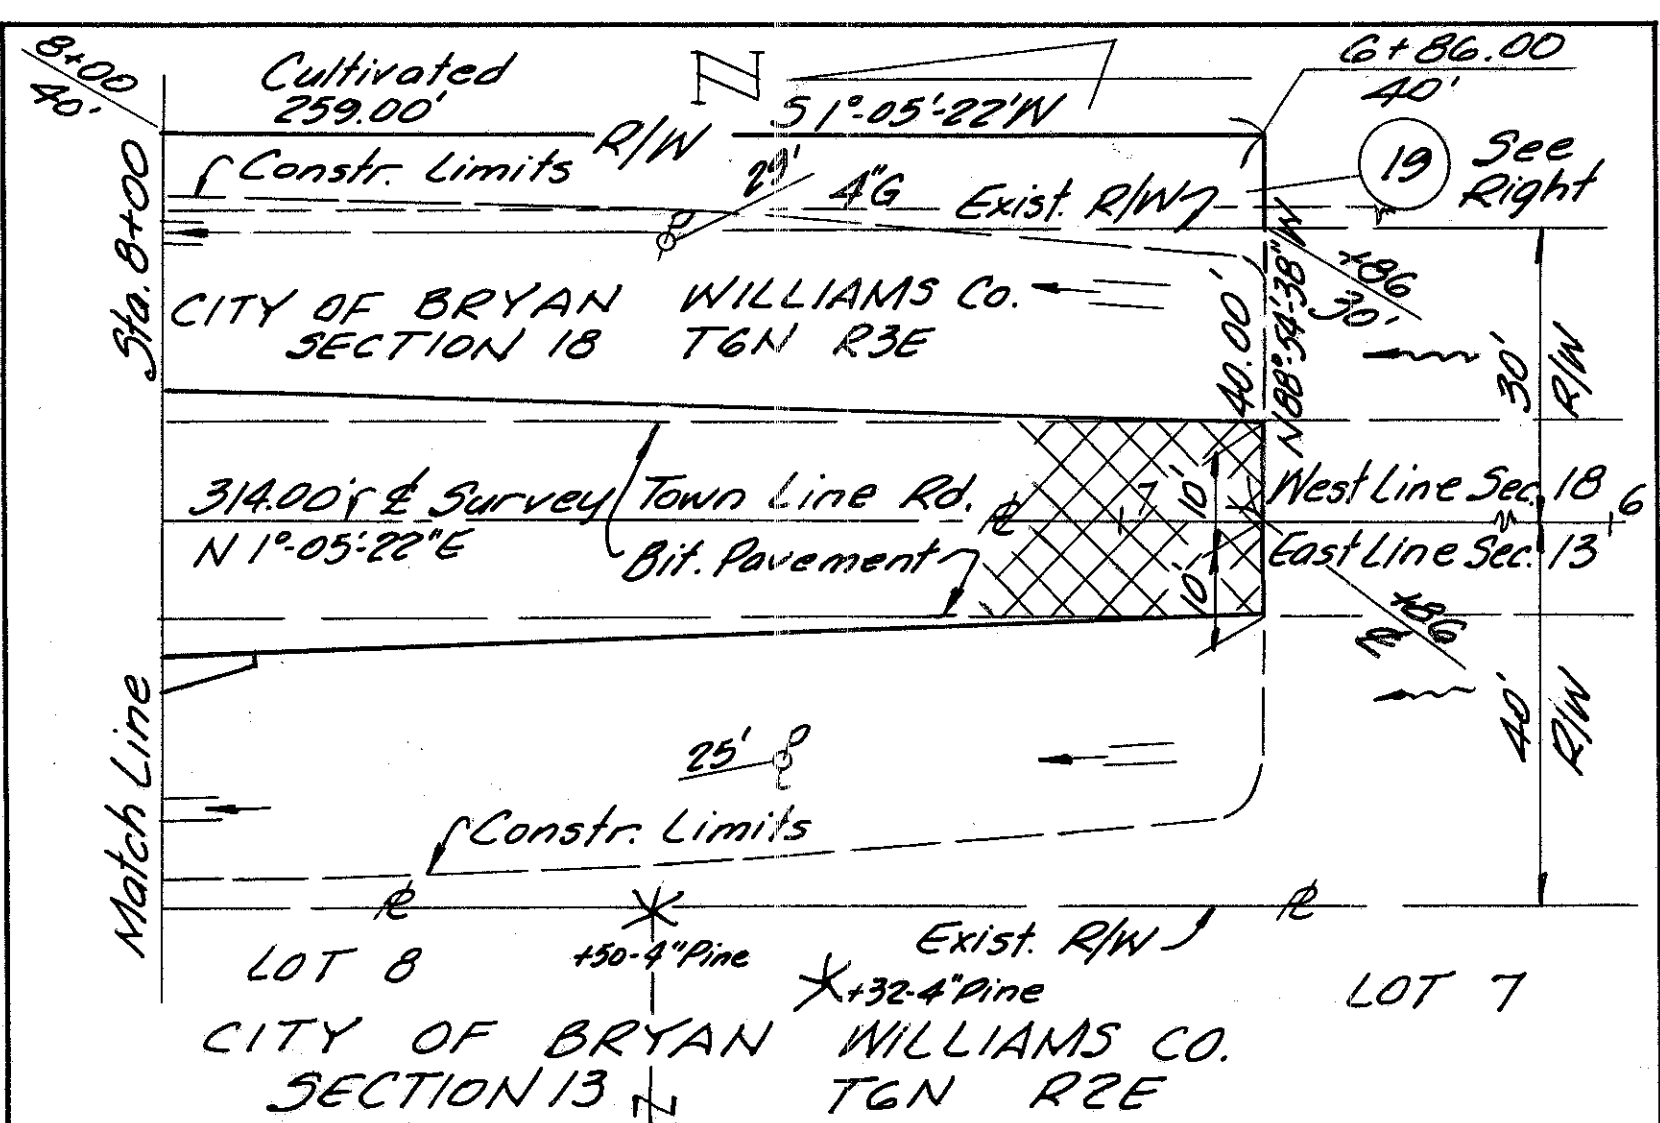 8+00
40'
Cultivated
259.00'
N
S 1°-05'-22'W
6+86.00
40'
R/W
Constr. Limits
29'
4"G
Exist. R/W
19
See
Right
Sta. 8+00
CITY OF BRYAN WILLIAMS Co.
SECTION 18 T6N R3E
40.00'
N88°-54'-38"W
+86
30'
30'
R/W
314.00' ₵ Survey Town Line Rd. ₵
7
10'
West Line Sec. 18
6
N 1°-05'-22"E
Bit. Pavement
10'
East Line Sec. 13
+86
40'
R/W
Match Line
25'
Constr. Limits
Exist. R/W
LOT 8
+50-4"Pine
+32-4"Pine
LOT 7
CITY OF BRYAN WILLIAMS CO.
SECTION 13 T6N R2E